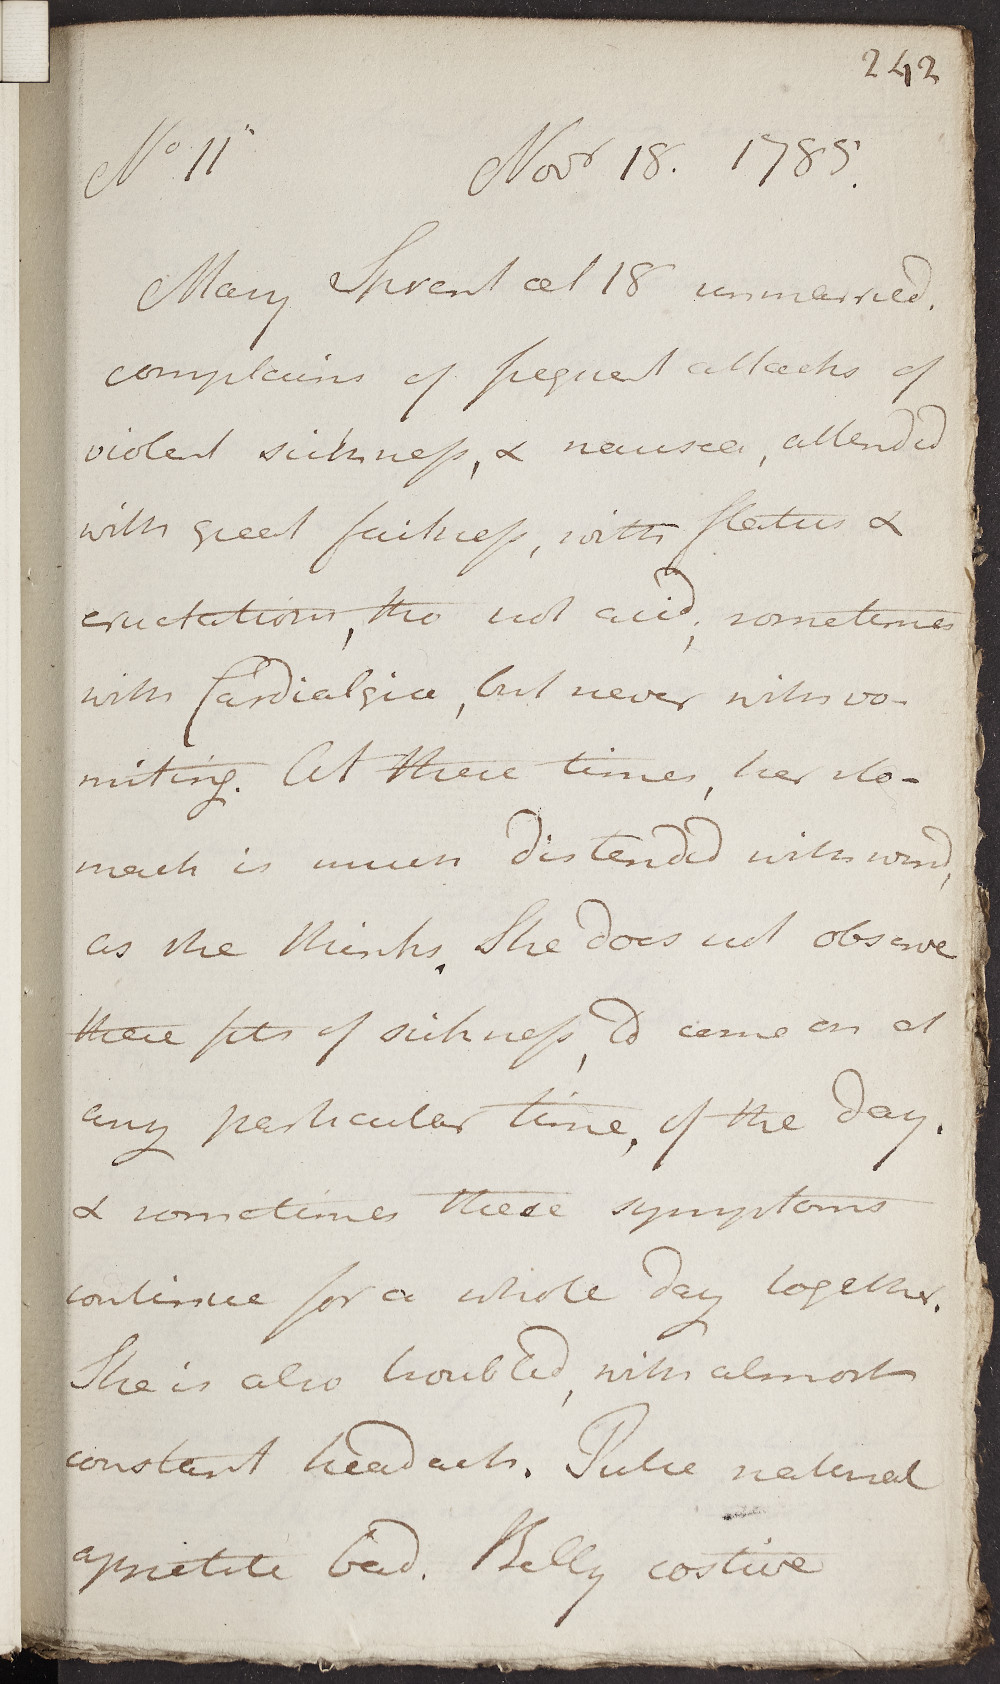 242
No 11 Novr 18. 1785.
Mary Sprent æt 18 unmarried.
complains of frequent attacks of
violent sickness, & nausea, attended
with great faitness, with flatus &
eructations, tho not acid, sometimes
with Cardialgia, but never with vo-
miting. At these times, her sto-
mach is much distended with wind,
as she thinks. She does not observe
these fits of sickness, to come on at
any particular time, of the day.
& sometimes these symptoms
continue for a whole day together.
She is also troubled, with almost
constant headach. Pulse natural
appetite bad. Belly costive